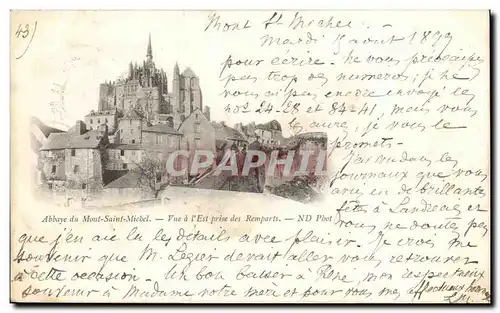 43)
Mont St Michel. -
Mardi 15 août 1899
pour écrire. - Ne vous préoccupez
pas trop des numéros; je ne
vous ai pas encore envoyé les
nos 24-28 et 34-41, mais vous
les aurez, je vous le
promets -
J'ai vu dans les
journaux que vous
avez eu de brillantes
fêtes à Landrecies et
vous ne doutez pas
CPARAMA
Abbaye du Mont-Saint-Michel. — Vue à l'Est prise des Remparts. — ND Phot
que j'en ai lu les détails avec plaisir. Je crois me
souvenir que M. Légier devait aller vous retrouver
à cette occasion - Un bon baiser à mes respectueux
souvenir à Madame votre mère et pour vous mes